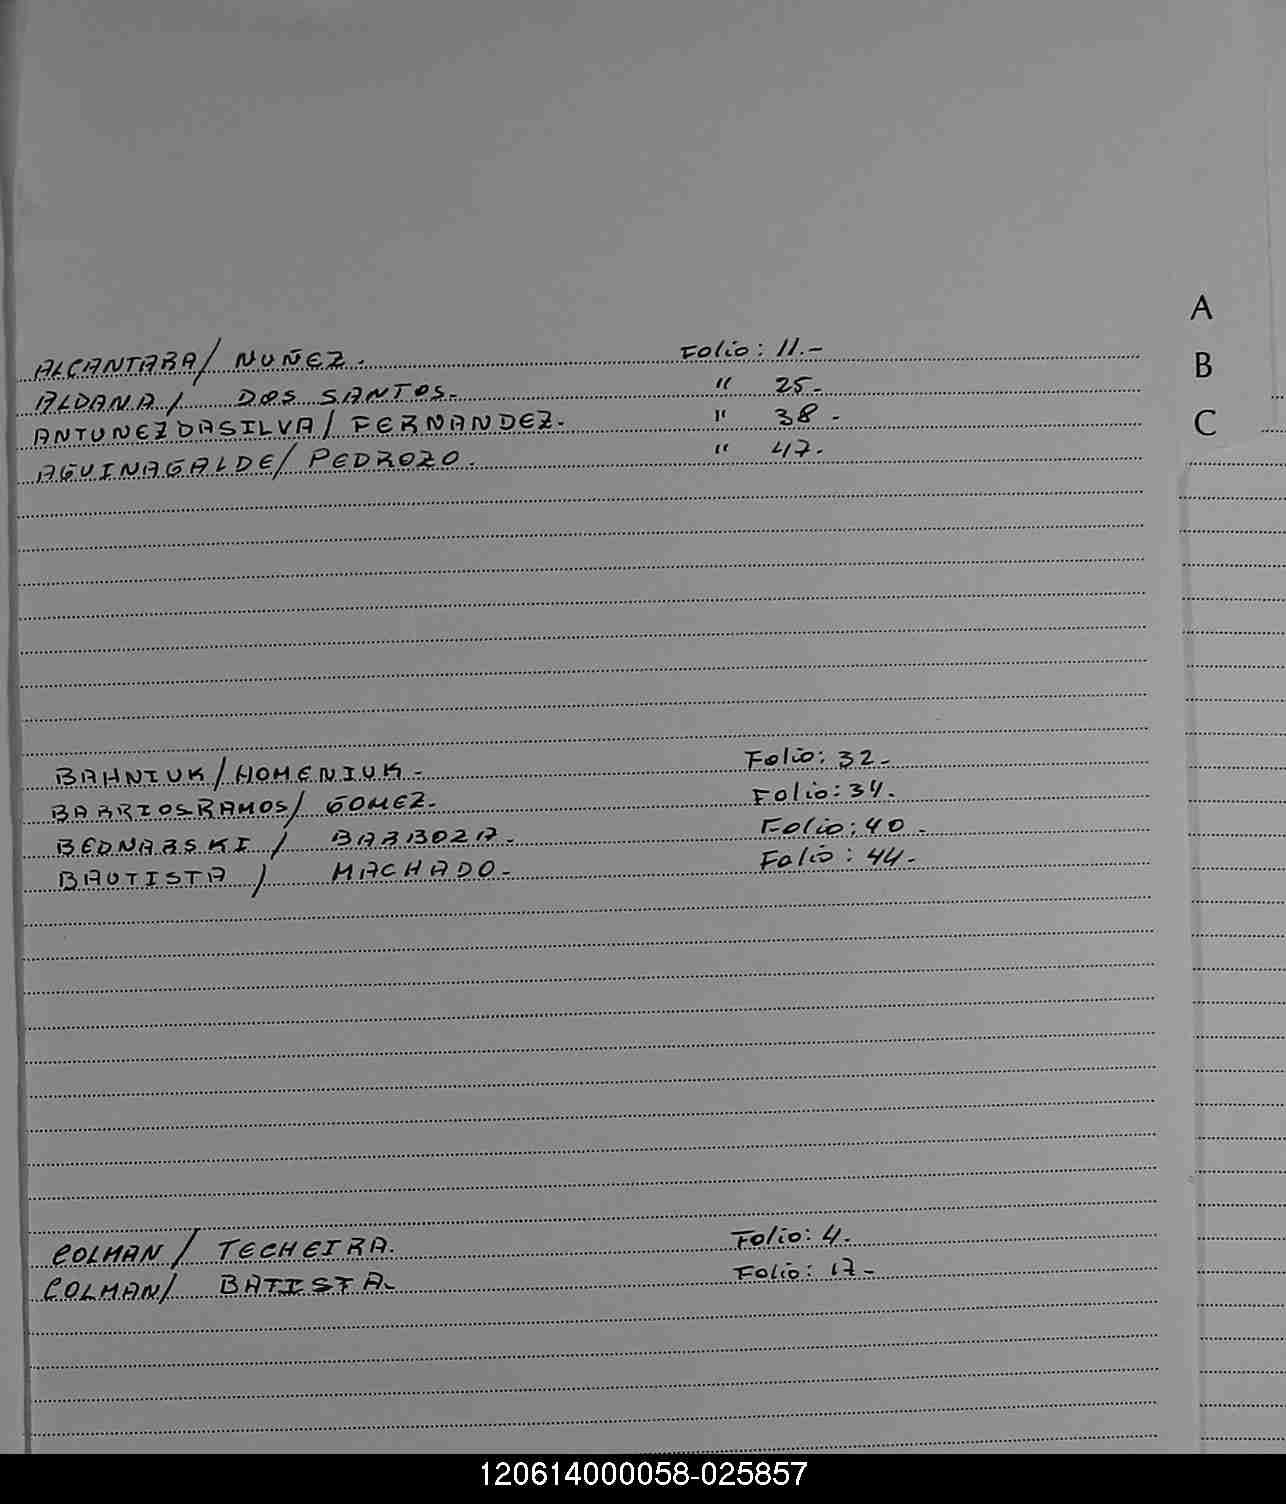 A
B
C
ALCANTARA/ NUÑEZ. Folio: 11.-
ALDANA/ DOS SANTOS.- " 25.-
ANTUNEZ DA SILVA/ FERNANDEZ.- " 38.-
AGUINAGALDE/ PEDROZO. " 47.-
BAHNIUK/HOMENIUK.- Folio: 32.-
BARRIOS RAMOS/ GOMEZ.- Folio: 34.
BEDNARSKI / BARBOZA.- Folio: 40.-
BAUTISTA / MACHADO.- Folio: 44.-
COLMAN / TECHEIRA. Folio: 4.
COLMAN/ BATISTA.- Folio: 17.-
120614000058-025857